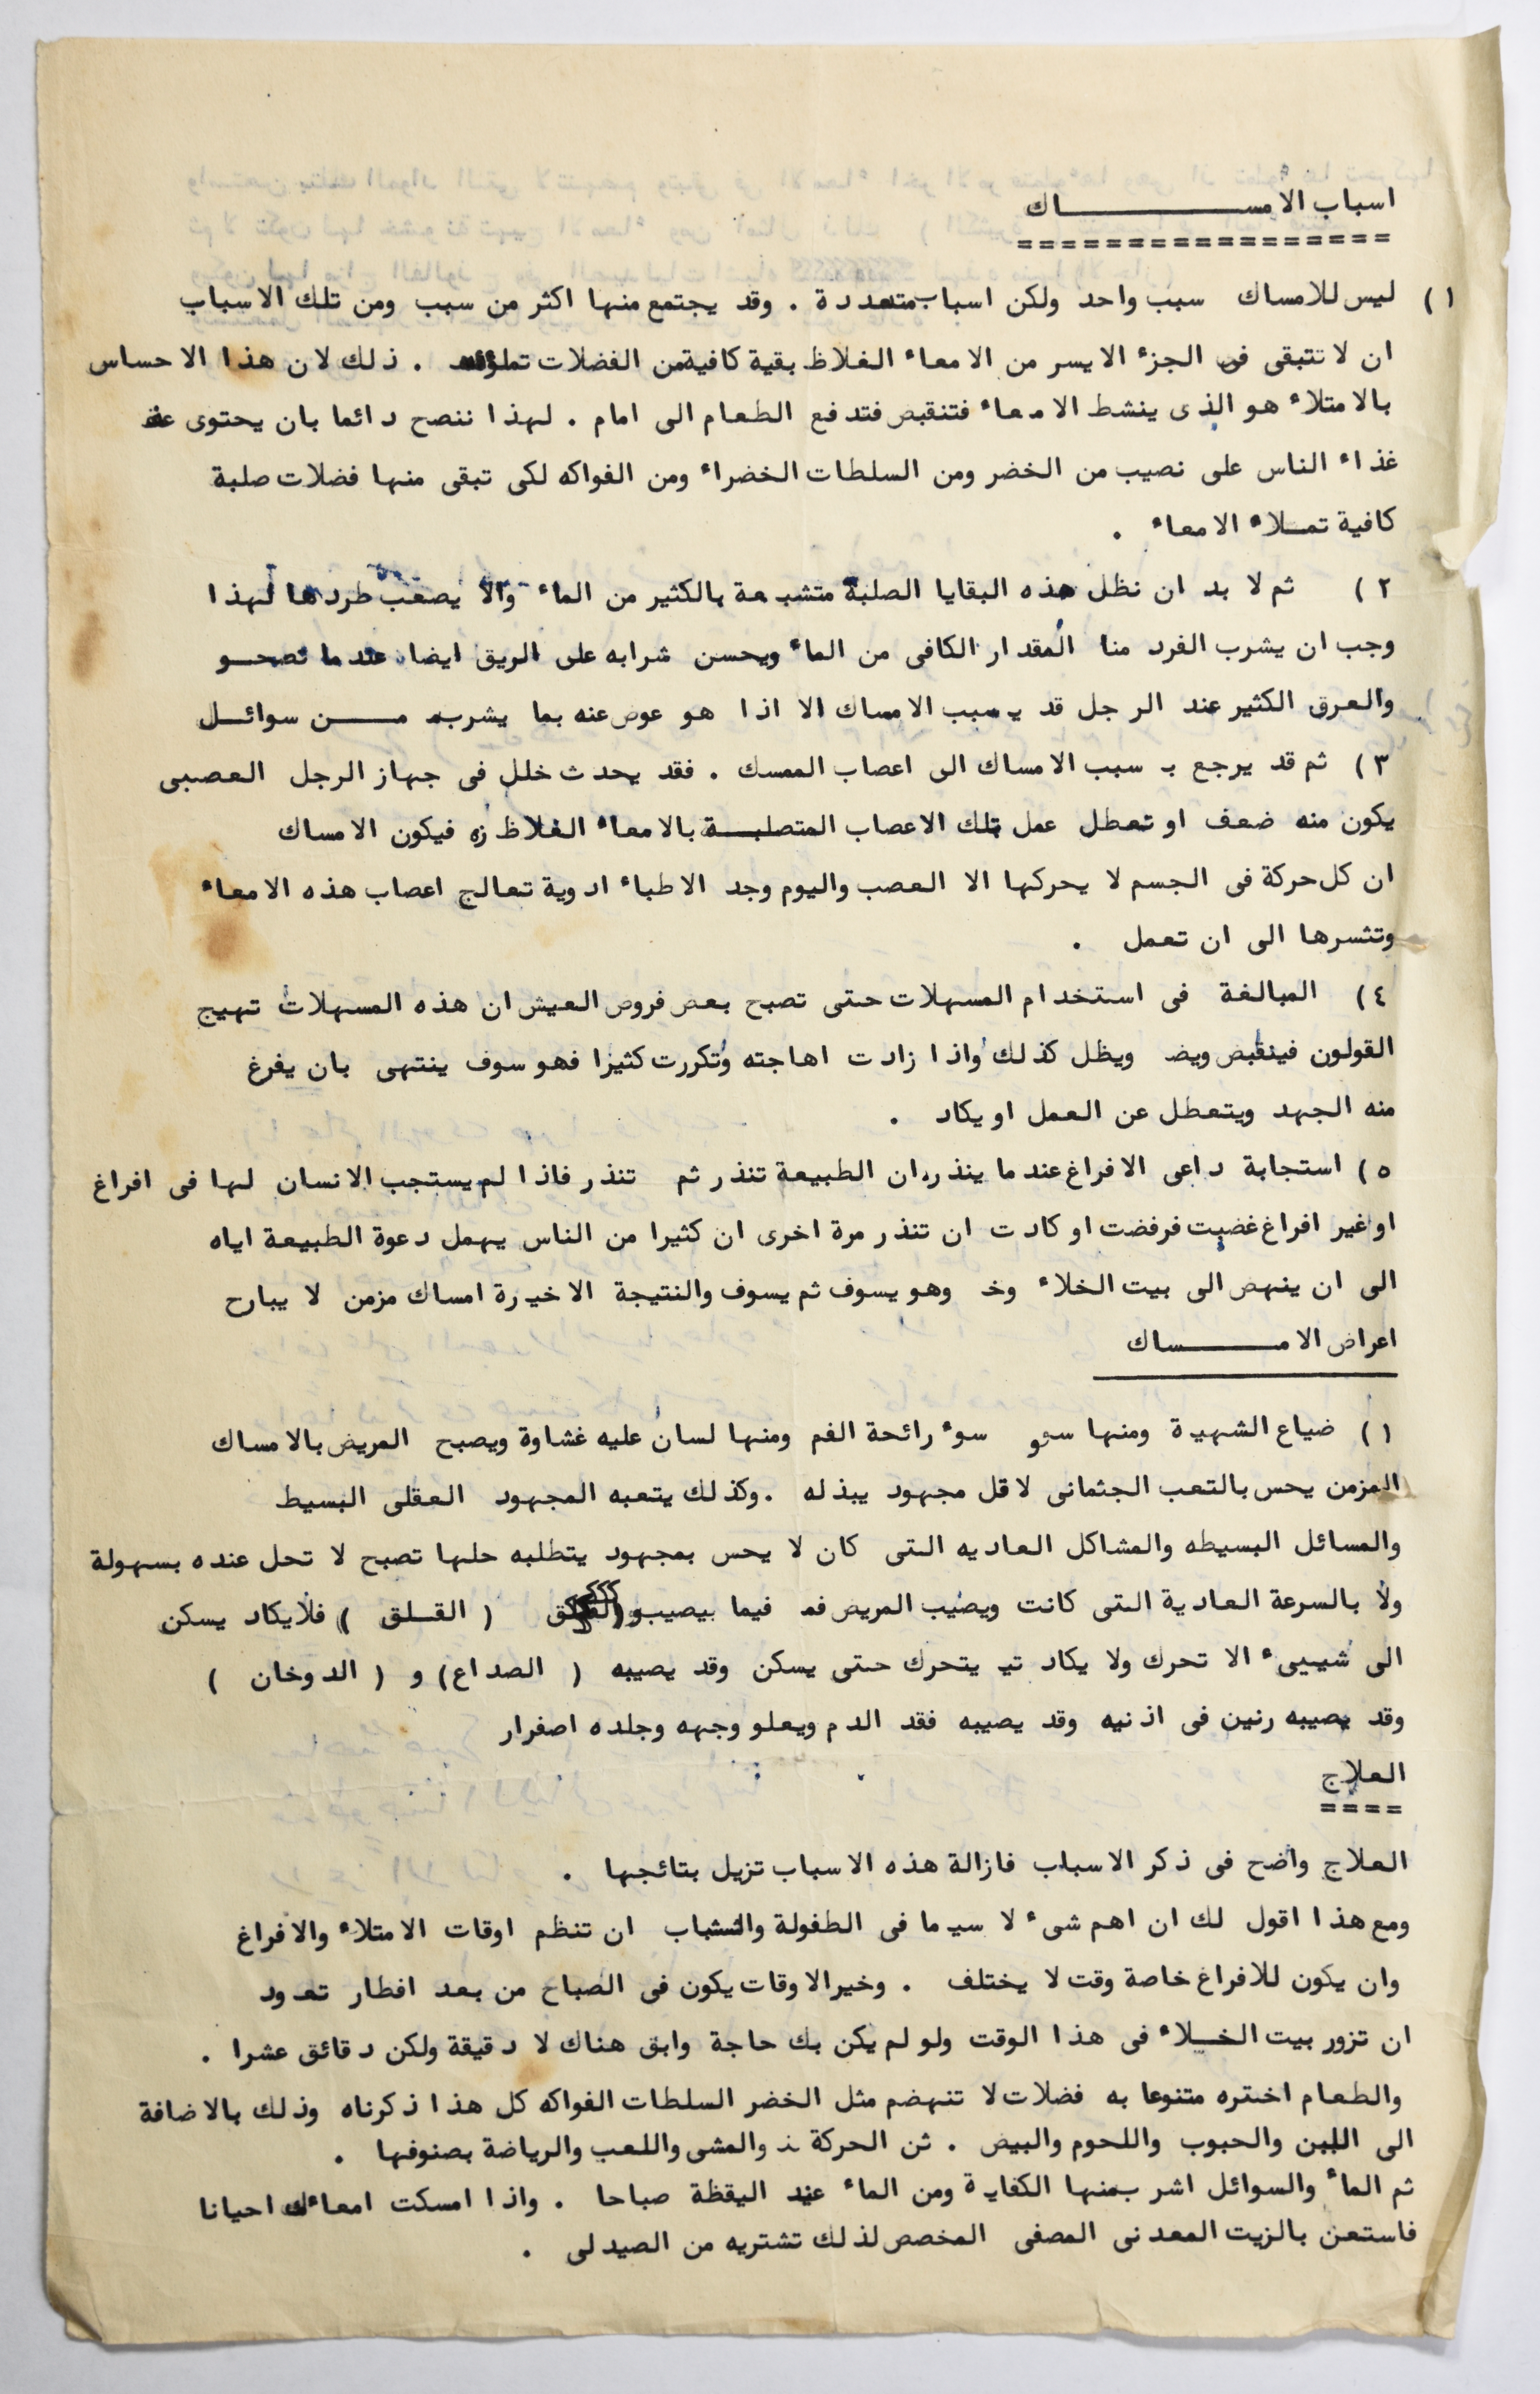 اسباب الامســـــــاك
=================
١) ليس للامساك سبب واحد ولكن اسباب متعددة . وقد يجتمع منها اكثر من سبب ومن تلك الاسباب
ان لا تتبقى فى الجزء الايسر من الامعاء الغلاظ بقية كافية من الفضلات تملؤه . ذلك لان هذا الاحساس
بالامتلاء هو الذى ينشط الامعاء فتنقبض فتدفع الطعام الى امام . لهذا ننصح دائما بان يحتوى
غذاء الناس على نصيب من الخضر ومن السلطات الخضراء ومن الفواكه لكى تبقى منها فضلات صلبة
كافية تمـلاء الامعاء .
٢) ثم لا بد ان نظل هذه البقايا الصلبة متشبعة بالكثير من الماء والا يصعب طردها لهذا
وجب ان يشرب الفرد منا المقدار الكافى من الماء ويحسن شرابه على الريق ايضا عندما تصحـو
والعرق الكثير عند الرجل قد يسبب الامساك الا اذا هو عوض عنه بما يشربه مـــن سوائـل
٣) ثم قد يرجع بـ سبب الامساك الى اعصاب الممسك . فقد يحدث خلل فى جهاز الرجل العصبى
يكون منه ضعف او تعطل عمل تلك الاعصاب المتصلبـــة بالامعاء الغلاظ فيكون الامساك
ان كل حركة فى الجسم لا يحركها الا العصب واليوم وجد الاطباء ادوية تعالج اعصاب هذه الامعاء
وتثسرها الى ان تعمل .
٤) المبالغة فى استخدام المسهلات حتى تصبح بعض فروض العيش ان هذه المسهلات تهيج
القولون فينقبض ويضـ ويظل كذلك واذا زادت اهاجته وتكررت كثيرا فهو سوف ينتهى بان يفرغ
منه الجهد ويتعطل عن العمل او يكاد .
٥) استجابة داعى الافراغ عندما ينذر، ان الطبيعة تنذر ثم تنذر فاذا لم يستجب الانسان لها فى افراغ
او غير افراغ غضبت فرفضت او كادت ان تنذر مرة اخرى ان كثيرا من الناس يهمل دعوة الطبيعة اياه
الى ان ينهض الى بيت الخلاء وخـ وهو يسوف ثم يسوف والنتيجة الاخيرة امساك مزمن لا يبارح
اعراض الامـــــساك
١) ضياع الشهية ومنها سوء رائحة الفم ومنها لسان عليه غشاوة ويصبح المريض بالامساك
المزمن يحس بالتعب الجثمانى لاقل مجهود يبذله . وكذلك يتعبه المجهود العقلى البسيط
والمسائل البسيطه والمشاكل العاديه التى كان لا يحس بمجهود يتطلبه حلها تصبح لا تحل عنده بسهولة
ولا بالسرعة العادية التى كانت ويصيب المريض فمـ فيما بيصيب ( القـلق ) فلا يكاد يسكن
الى شييىء الا تحرك ولا يكاد تيـ يتحرك حتى يسكن وقد يصيبه ( الصداع ) و ( الدوخان )
وقد يصيبه رنين فى اذنيه وقد يصيبه فقد الدم ويعلو وجهه وجلده اصفرار
العلاج
====
العلاج واضح فى ذكر الاسباب فازالة هذه الاسباب تزيل بتائجها .
ومع هذا اقول لك ان اهم شىء لا سيما فى الطفولة والشباب ان تنظم اوقات الامتلاء والافراغ
وان يكون للافراغ خاصة وقت لا يختلف . وخير الاوقات يكون فى الصباح من بعد افطار تعود
ان تزور بيت الخـلاء فى هذا الوقت ولو لم يكن بك حاجة وابق هناك لا دقيقة ولكن دقائق عشرا .
والطعام اختره متنوعا به فضلات لا تنهضم مثل الخضر السلطات الفواكه كل هذا ذكرناه وذلك بالاضافة
الى اللبن والحبوب واللحوم والبيض . ثن الحركة والمشى واللعب والرياضة بصنوفها .
ثم الماء والسوائل اشرب منها الكفاية ومن الماء عند اليقظة صباحا . واذا امسكت امعاءك احيانا
فاستعن بالزيت المعدنى المصفى المخصص لذلك تشتريه من الصيدلى .